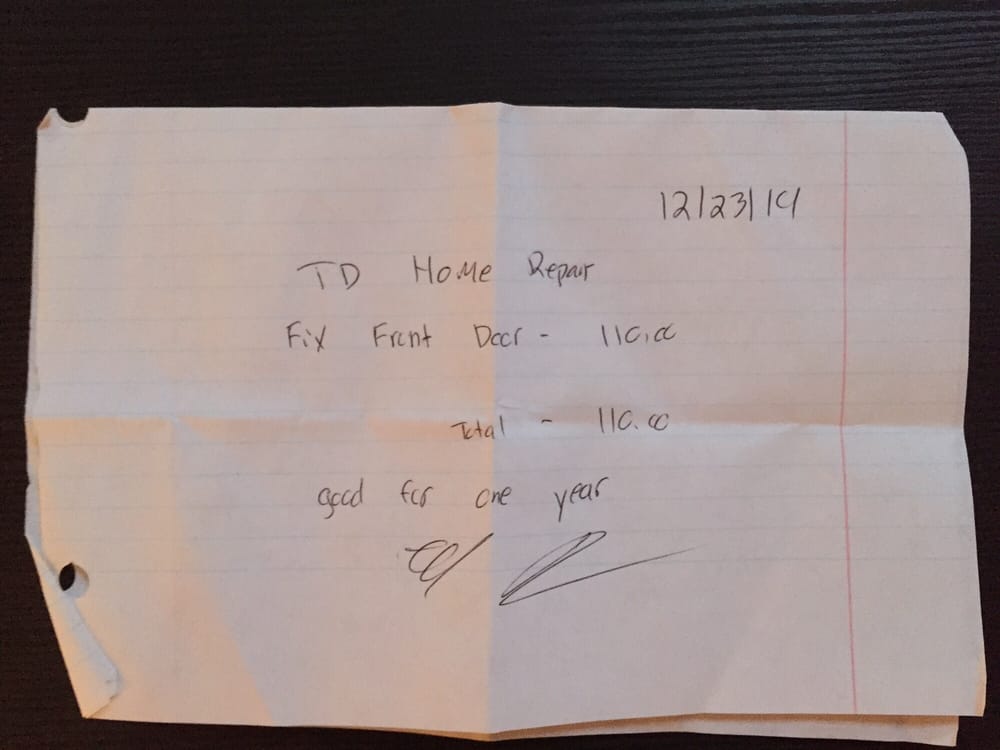 12/23/14
TD Home Repair
Fix Front Door - 110.00
Total - 110.00
good for one year